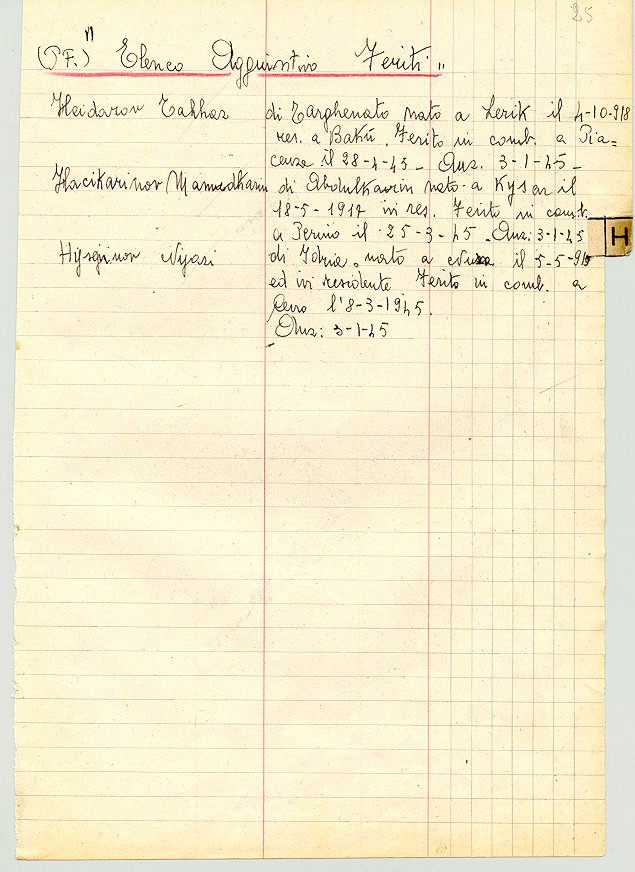 25
(PF.) " Elenco Aggiuntivo Feriti "
Heidarov Takhas di Targhenato nato a Lerik il 4-10-918
res. a Bakù. Ferito in comb. a Pia=
cenza il 28-4-45- Anz. 3-1-45-
Hacikarinov Mamedkam di Abdulkavin nato a Kysar il
18-5-1917 ivi res. Ferito in comb.
a Perino il 25-3-45. Anz: 3-1-45
H
Hyseginov Nyasi di Idris. nato a il 5-5-915
ed ivi residente Ferito in comb. a
l'8-3-1945.
Anz: 3-1-45